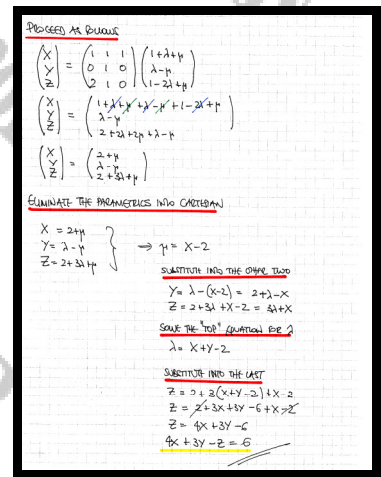 PROCEED AS FOLLOWS
(X Y Z) = (1 1 1 / 0 1 0 / 2 1 0) (1+λ+μ / λ-μ / 1-2λ+μ)
(X Y Z) = (1+λ+μ+λ-μ+1-2λ+μ / λ-μ / 2+2λ+2μ+λ-μ)
(X Y Z) = (2+μ / λ-μ / 2+3λ+μ)
ELIMINATE THE PARAMETRICS INTO CARTESIAN
X = 2+μ
Y = λ-μ
Z = 2+3λ+μ
} ⇒ μ = X-2
SUBSTITUTE INTO THE OTHER TWO
Y = λ-(X-2) = 2+λ-X
Z = 2+3λ+X-2 = 3λ+X
SOLVE THE "TOP" EQUATION FOR λ
λ = X+Y-2
SUBSTITUTE INTO THE LAST
Z = 2+3(X+Y-2)+X-2
Z = 2+3X+3Y-6+X-2
Z = 4X+3Y-6
4X+3Y-Z = 6